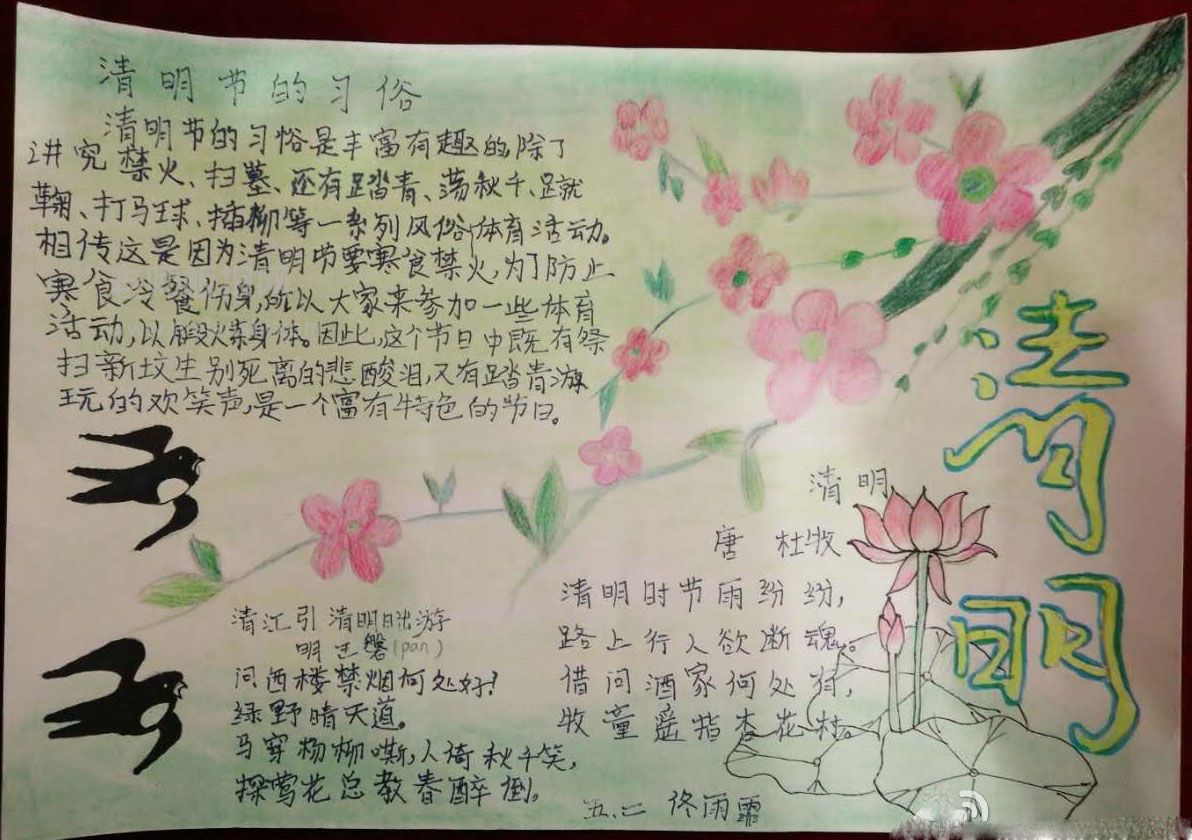 清明节的习俗
清明节的习俗是丰富有趣的,除了
讲究禁火、扫墓、还有踏青、荡秋千、蹴
鞠、打马球、插柳等一系列风俗体育活动。
相传这是因为清明节要寒食禁火,为了防止
寒食冷餐伤身,所以大家来参加一些体育
活动,以锻炼身体。因此,这个节日中既有祭
扫新坟生别死离的悲酸泪,又有踏青游
玩的欢笑声,是一个富有特色的节日。
清明
清明
唐 杜牧
清明时节雨纷纷,
路上行人欲断魂。
借问酒家何处有,
牧童遥指杏花村。
清江引 清明日出游
明 王磐(pán)
问西楼禁烟何处好?
绿野晴天道。
马穿杨柳嘶,人倚秋千笑,
探莺花总教春醉倒。
五.二 佟雨霏